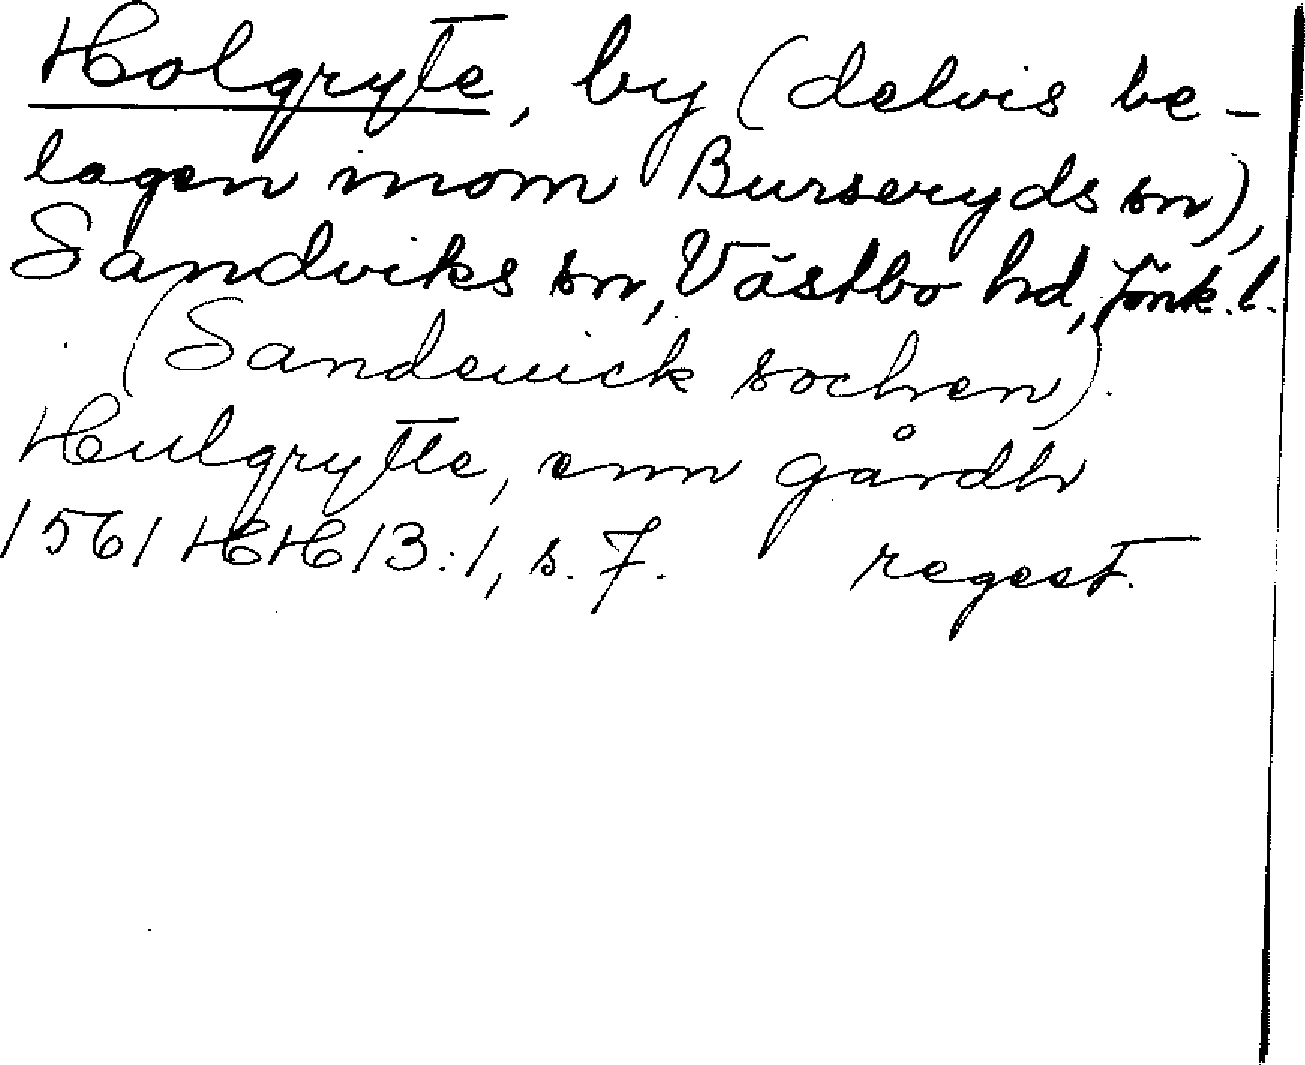 Holgryte, by (delvis be-
lagen inom Burseryds sn),
Sandviks sn, Västbo hd, Jönk. l.
(Sandewick sochen).
Hulgrytte, enn gårdh
1561 HH 13:1, s. 7. regest.